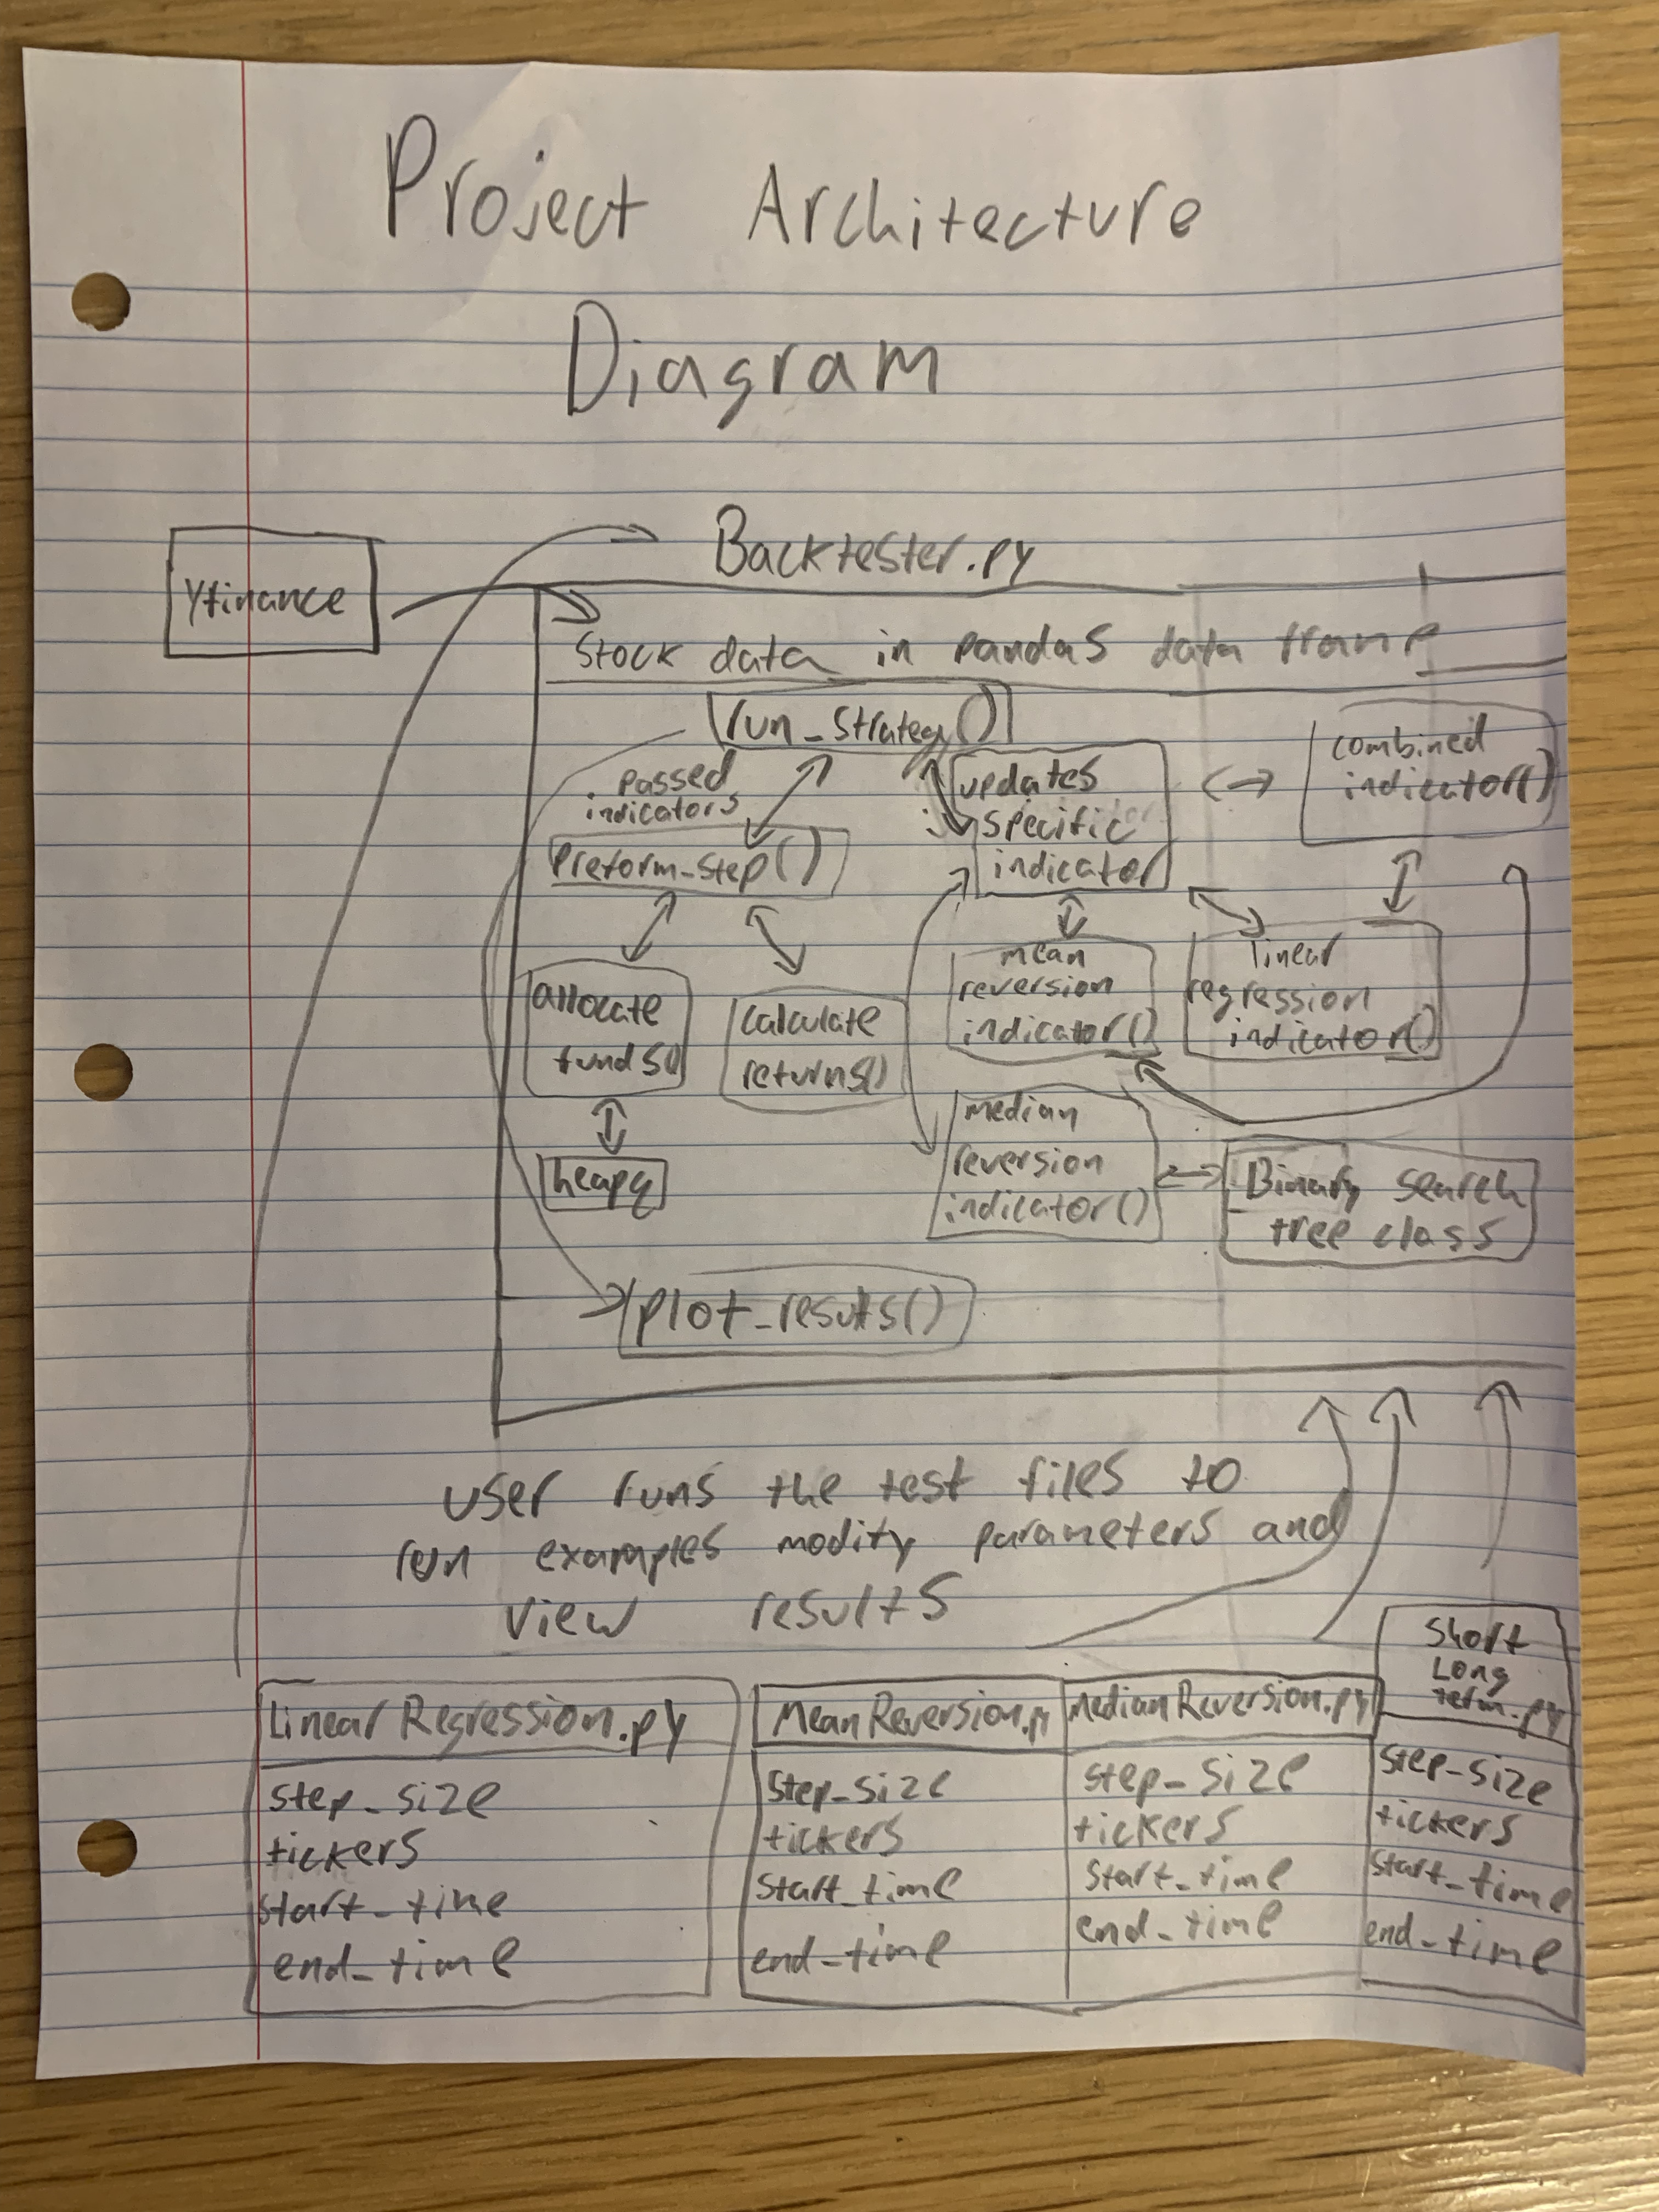 Project Architecture
Diagram
Yfinance
Backtester.py
Stock data in pandas data frame
run_strategy()
passed
indicators
updates
specific
indicator
combined
indicator()
Preform_step()
allocate
funds()
calculate
returns()
mean
reversion
indicator()
linear
regression
indicator()
heapq
median
reversion
indicator()
Binary search
tree class
plot_results()
user runs the test files to
run examples modify parameters and
view results
Linear Regression.py
step_size
tickers
start_time
end_time
Mean Reversion.py
step_size
tickers
start_time
end_time
Median Reversion.py
step_size
tickers
start_time
end_time
Short
Long
term.py
step_size
tickers
start_time
end_time